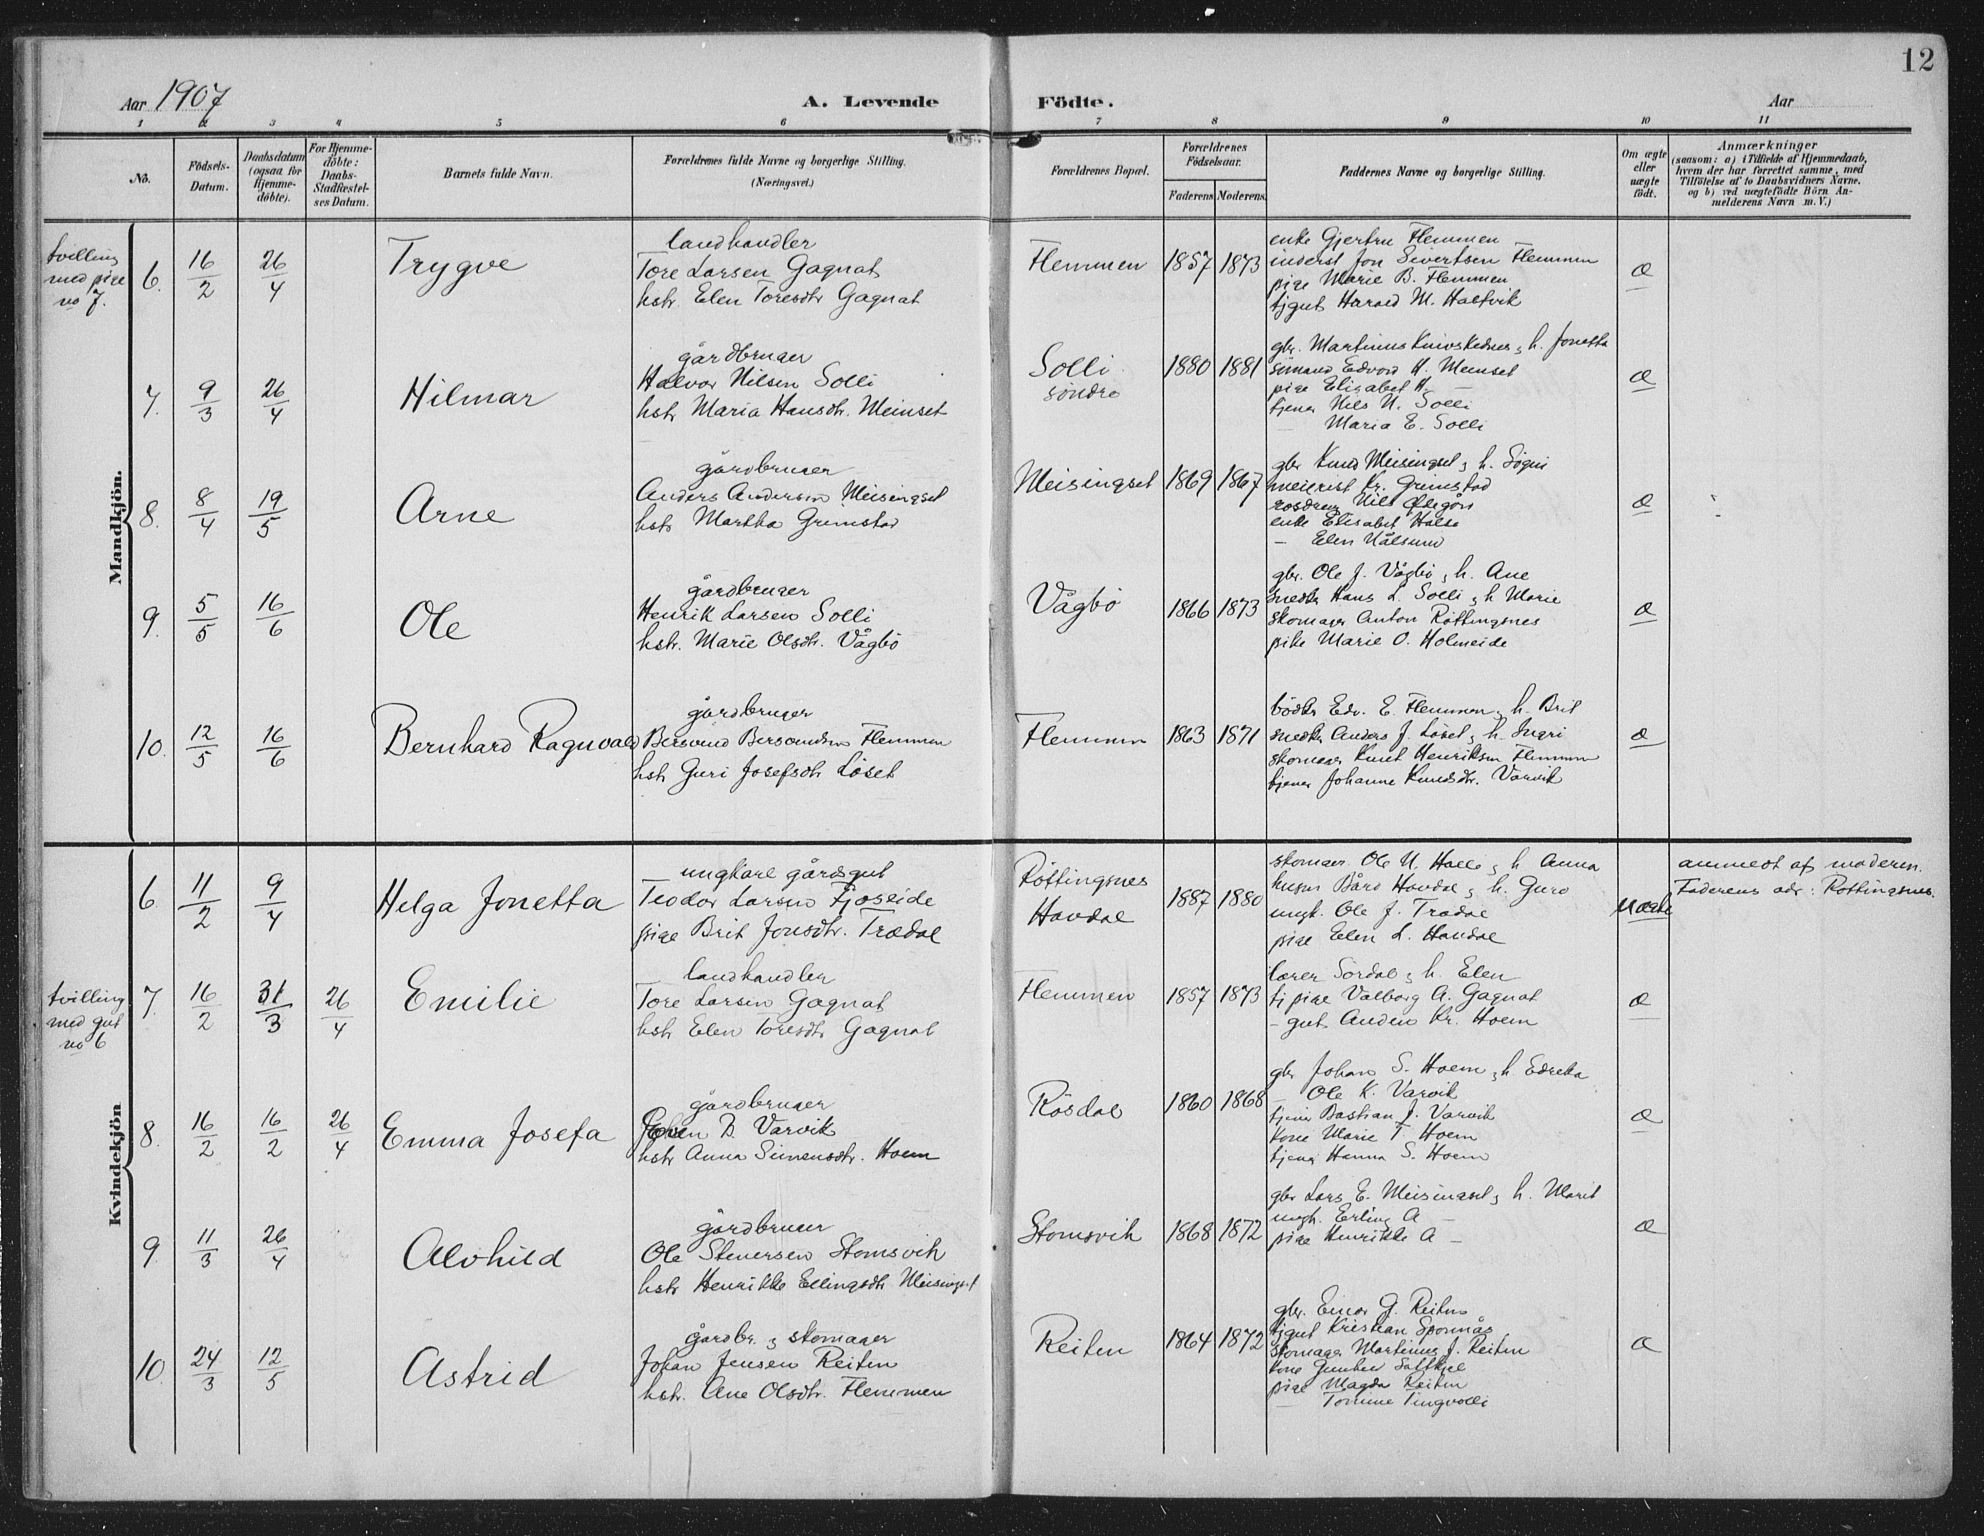 12
Aar 1907 A. Levende Födte. Aar
1 2 3 4 5 6 7 8 9 10 11
No. Födsels-Datum. Daabsdatum (ogsaa for Hjemme-döbte). For Hjemme-döbte: Daabs-Stadfæstel-ses Datum. Barnets fulde Navn. Forældrenes fulde Navne og borgerlige Stilling. (Næringsvei.) Forældrenes Bopæl. Forældrenes Födselsaar. Faderens Moderens Faddernes Navne og borgerlige Stilling. Om ægte eller uægte födt. Anmærkninger (saasom: a) i Tilfælde af Hjemmedaab, hvem der har forrettet samme, med Tilföielse af to Daabsvidners Navne, og b) ved uægtefödte Börn An-melderens Navn m. V.)
Mandkjön.
tvilling
med pige
no 7.
6. 16/2 26/4 Trygve
landhandler
Tore Larsen Gagnat
hstr. Elen Toresdtr Gagnat
Flemmen 1857 1873
enke Gjertru Flemmen
inderst Jon Sivertsen Flemmen
pige Marie B. Flemmen
tjgut Harald M. Haltvik
æ
7. 9/3 26/4 Hilmar
gårdbruger
Halvor Nilsen Solli
hstr Maria Hansdtr. Meinset
Solli
söndre
1880 1881
gbr. Martinus h. Jonetta
Edvard H. Meinset
pige Elisabet H. —
tjener Nils N. Solli
— Maria E. Solli
æ
8. 8/4 19/5 Arne
gårdbruger
Anders Andersen Meisingset
hstr Martha Grimstad
Meisingset 1869 1867
gbr Knud Meisingset & h. Sögni
meierist Kr. Grimstad
Nils
enke Elisabet Halse
— Elen Nålsund
æ
9. 5/5 16/6 Ole
gårdbruger
Henrik Larsen Solli
hstr. Marie Olsdtr. Vågbö
Vågbö 1866 1873
gbr. Ole J. Vågbö & h. Ane
snedker Hans L. Solli & h Marie
skomager Anton Röttingsnes
pike Marie O. Holmeide
æ
10. 12/5 16/6 Bernhard Ragnvald
gårdbruger
Bersvend Bersvendsen Flemmen
hstr Guri Josefsdtr Löset
Flemmen 1863 1871
bödker Edv. E. Flemmen & h. Brit
snedker Anders J. Löset & h. Ingri
skomager Knut Henriksen Flemmen
tjener Johanne Knudsdtr. Varvik
æ
Kvindekjön
6. 11/2 9/4 Helga Jonetta
ungkarl gårdsgut
Teodor Larsen Fjøseide
pige Brit Jonsdtr. Trædal
Röttingsnes
Havdal
1887 1880
skomager Ole N. Halle & h Anna
husm Bård Havdal & h. Guro
ungk. Ole J. Trædal
pige Elen L. Havdal
uægte
anmeldt af moderen.
Faderens adr: Röttingsnes.
tvilling
med gut
no 6
7. 16/2 31/3 26/4 Emilie
landhandler
Tore Larsen Gagnat
hstr Elen Toresdtr Gagnat
Flemmen 1857 1873
lærer Sördal & h. Elen
tj pige Valborg A. Gagnat
— gut Anders Kr. Hoem
æ
8. 16/2 16/2 26/4 Emma Josefa
gårdbruger
B. Varvik
hstr Anna Simensdtr. Hoem
Rösdal 1860 1868
gbr Johan S. Hoem & h. Edreka
— Ole K. Varvik
tjener Bastian J. Varvik
kone Marie T Hoem
tjener Hanna S. Hoem
æ
9. 11/3 26/4 Alvhild
gårdbruger
Ole Stenersen Stomsvik
hstr Henrikke Ellingsdtr Meisingset
Stomsvik 1868 1872
gbr Lars E. Meisingset & h. Marit
ungk. Erling A —
pige Henrikke A —
æ
10. 24/3 12/5 Astrid
gårdbr. & skomager
Johan Jensen Reiten
hstr. Ane Olsdtr. Flemmen
Reiten 1864 1872
gbr. Einar G. Reiten
tjgut Kristian Sponnås
skomager Martinus J. Reiten
kone Gunhild Saltkjel
pige Magda Reiten
— Tomine Tingvolli
æ